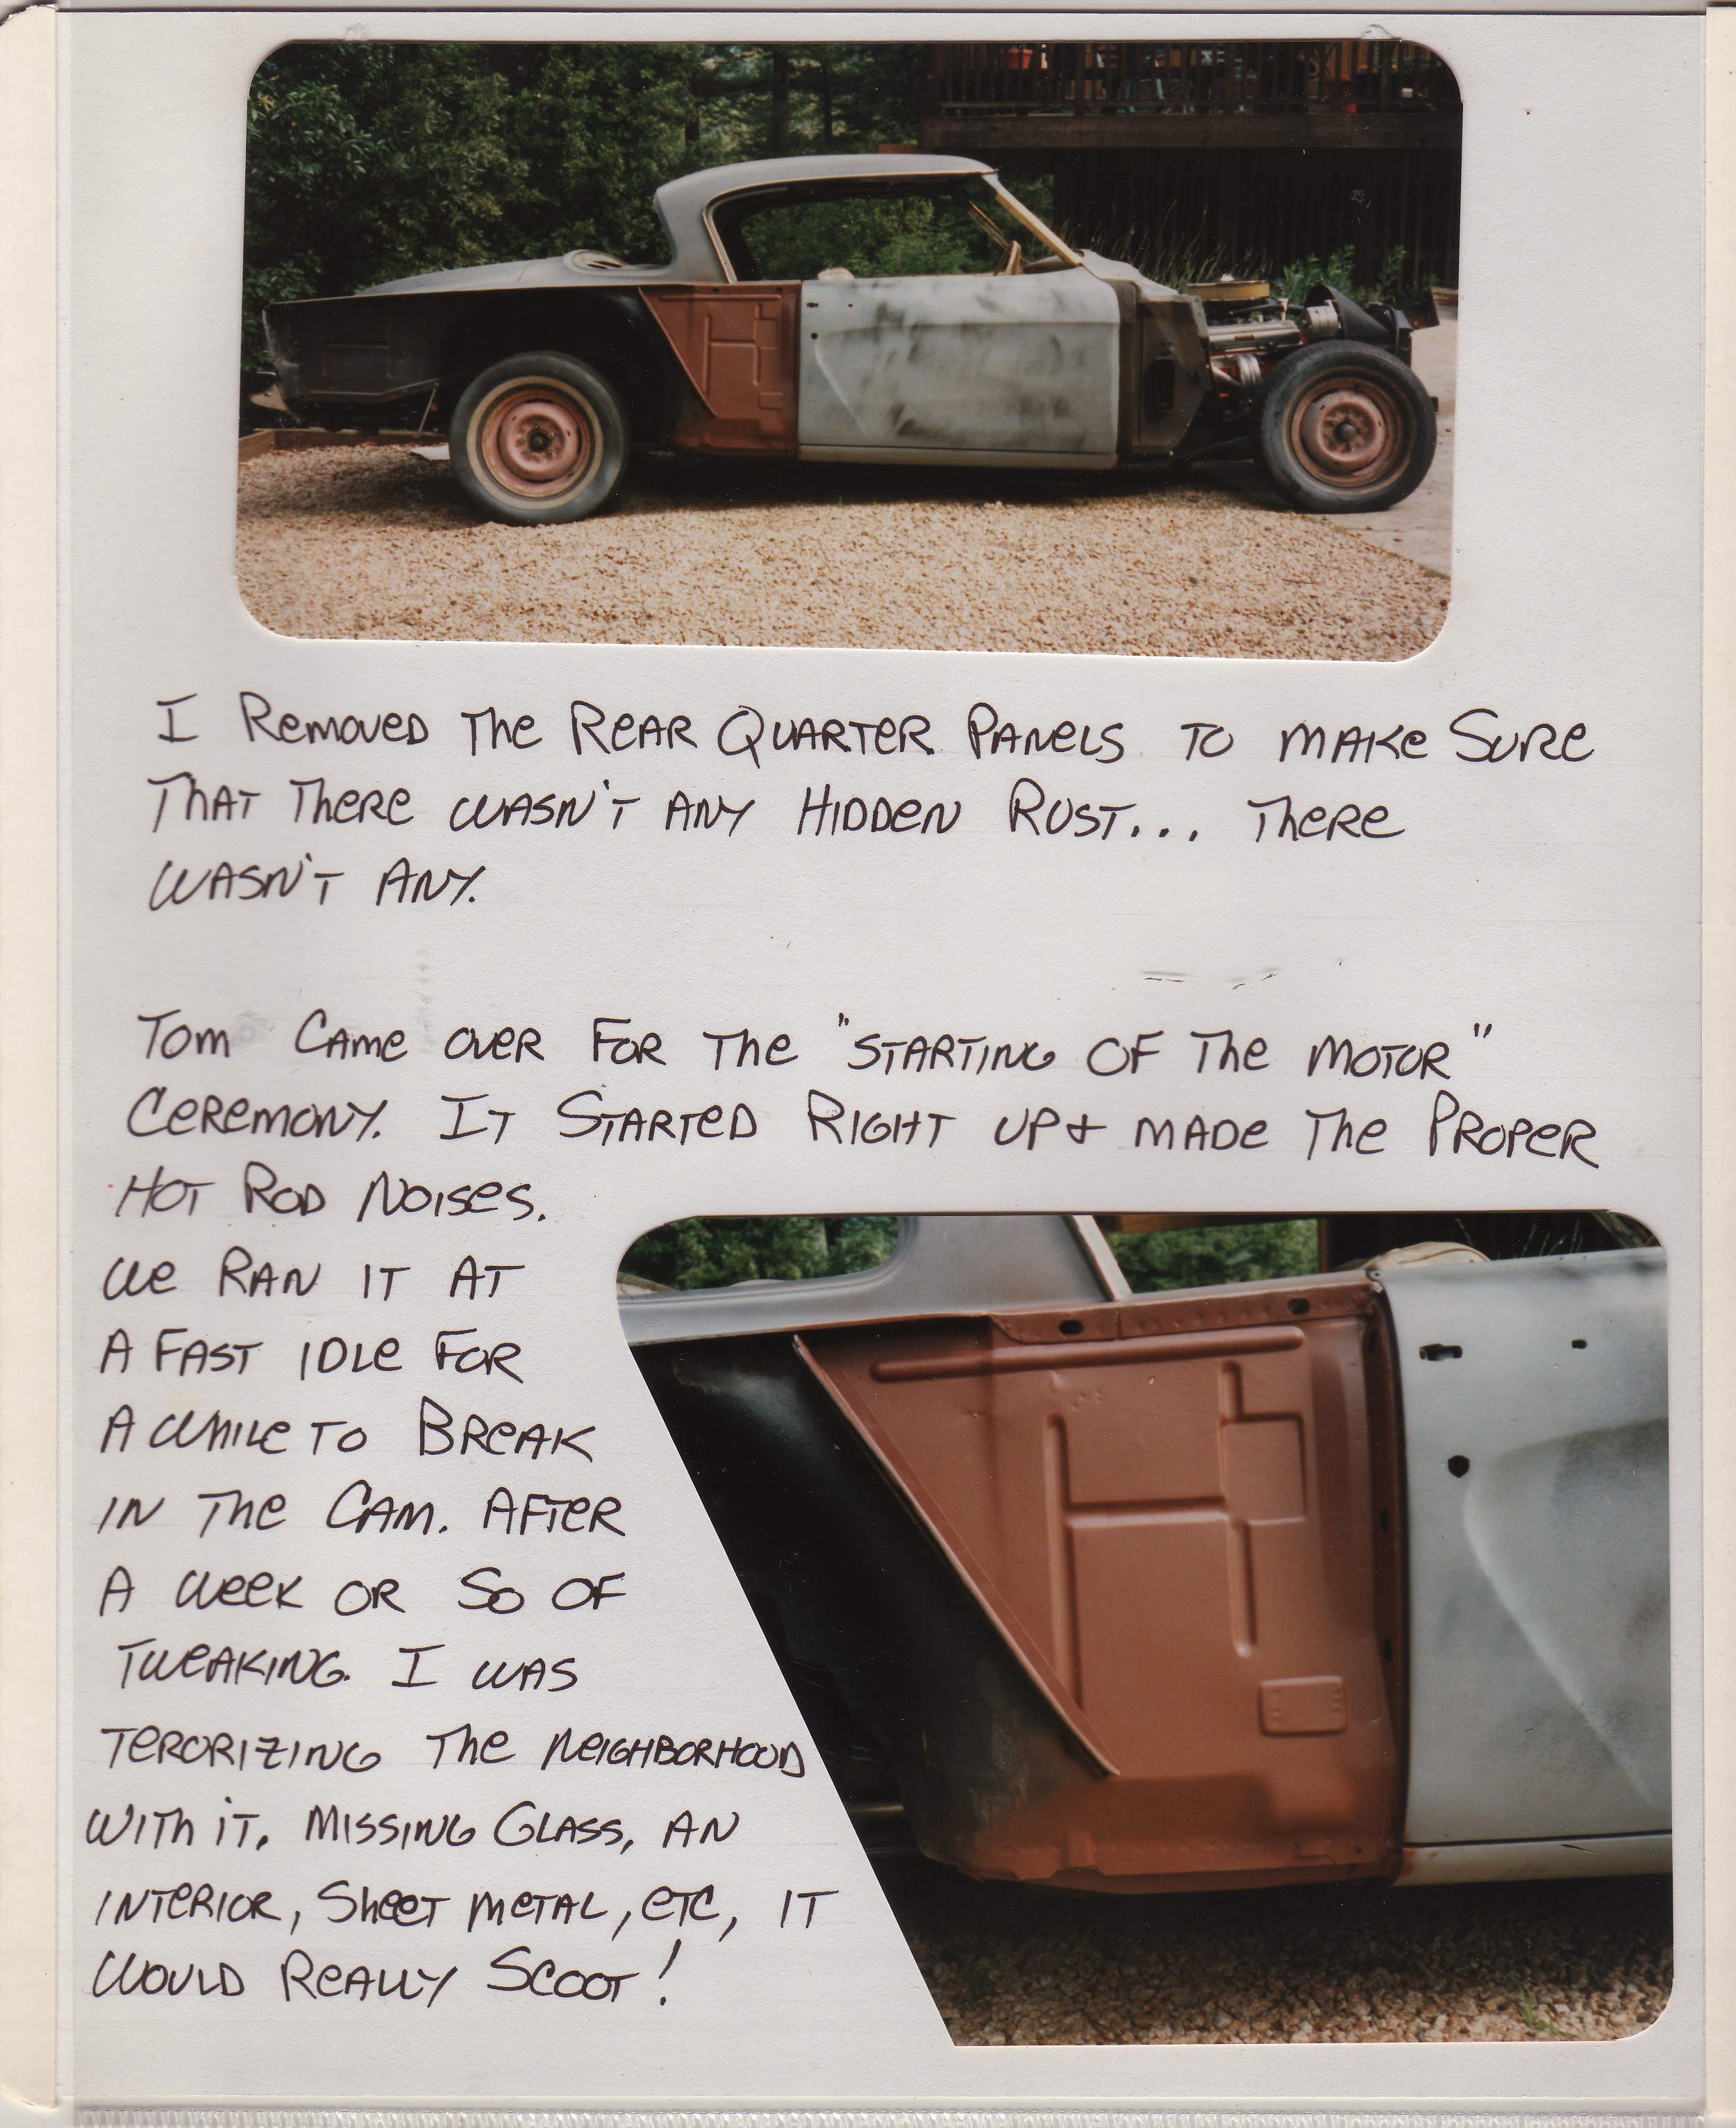 I Removed The Rear Quarter Panels to make Sure
That There wasn't any Hidden Rust... There
wasn't any.
Tom Came over for the "Starting of the motor"
Ceremony. It Started Right up + made the Proper
Hot Rod Noises.
We ran it at
a fast idle for
a while to Break
in the Cam. After
a week or so of
Tweaking. I was
terorizing the neighborhood
with it. Missing Glass, an
interior, Sheet metal, etc, it
would Really Scoot!